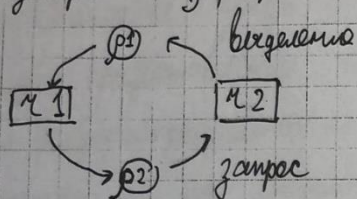 p1
выделенно
ч 1
ч 2
p2
запрос